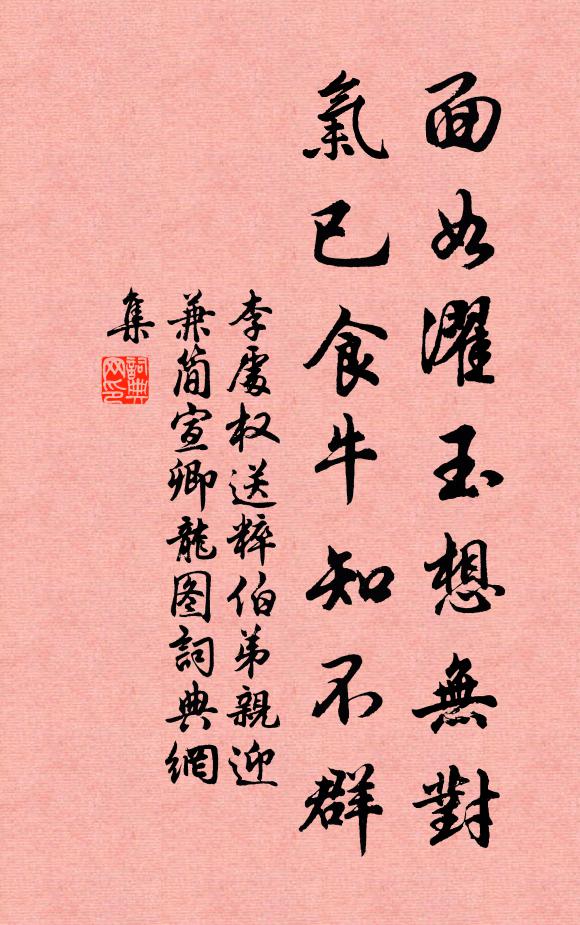 面如濯玉想無對
氣已食牛知不群
李處权送粹伯弟親迎
兼简宣卿龍图詞典網
集
詞典
网印